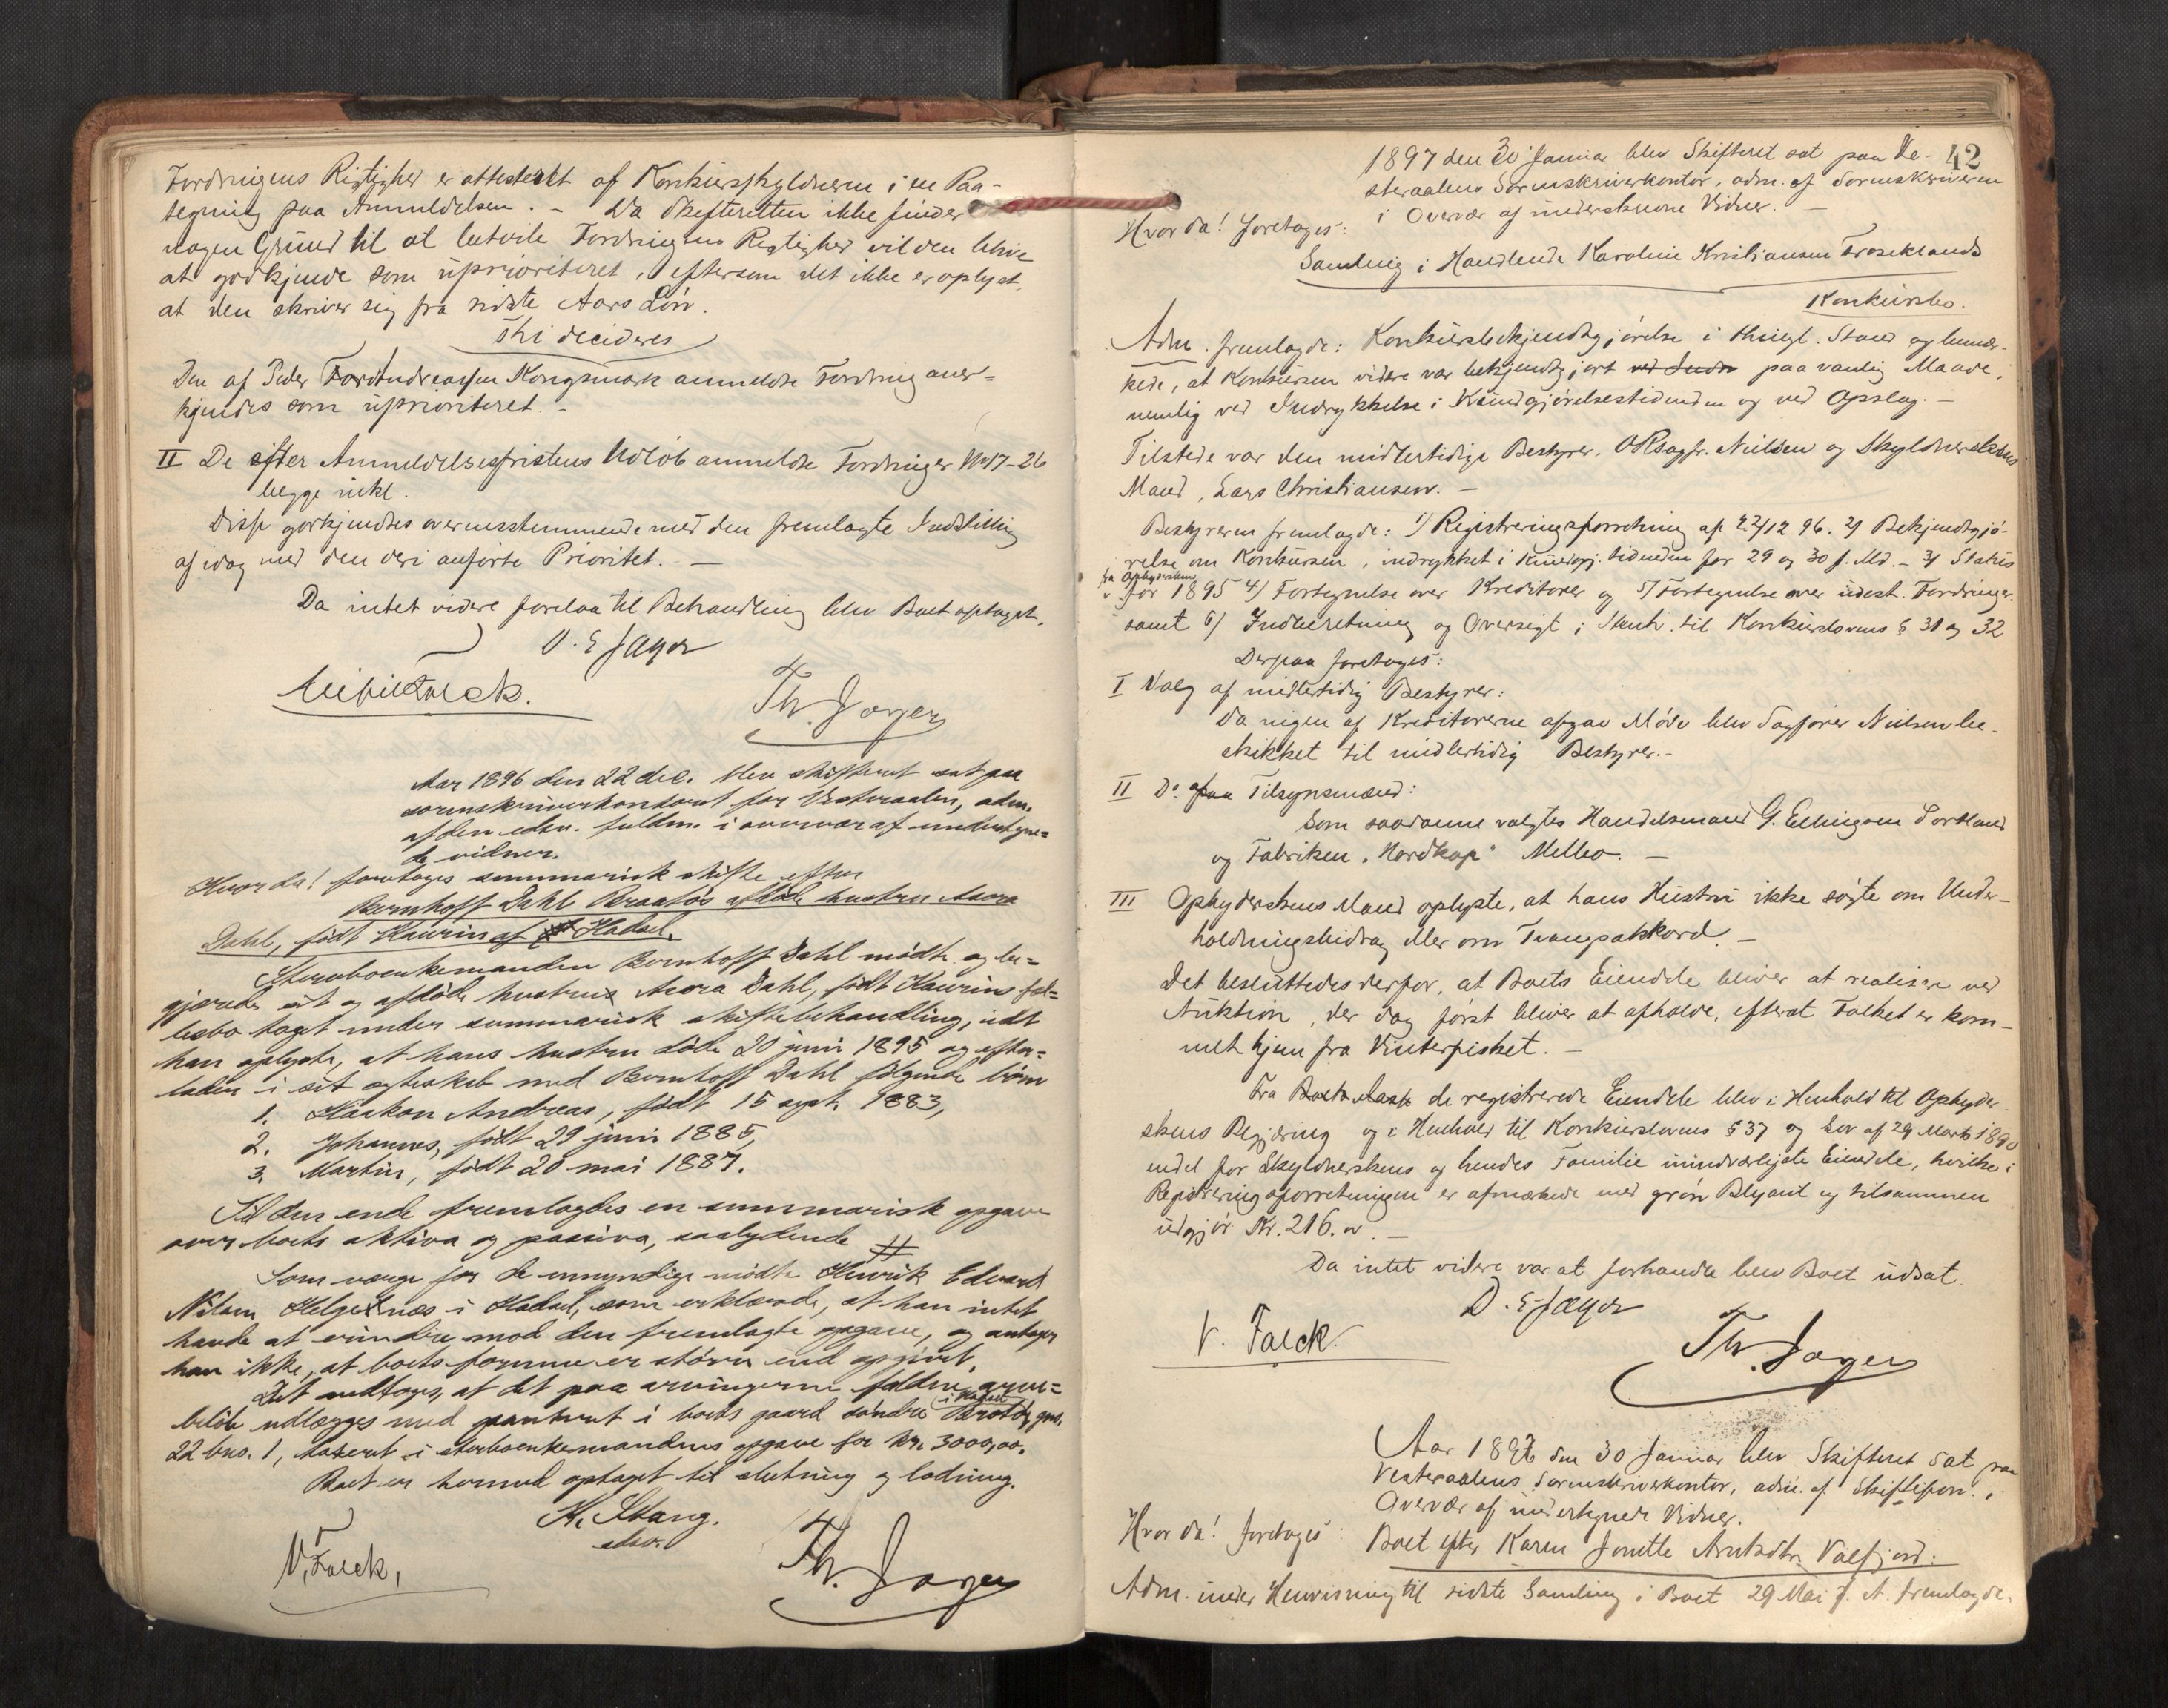 Fordringens Rigtighed er attesteret af Konkursskyldneren i en Paa-
tegning paa Anmeldelsen. – Da Skifteretten ikke finder
nogen Grund til at betvile Fordringens Rigtighed vil den blive
at godkjende som uprioriteret, eftersom det ikke er oplyst,
at den skriver sig fra sidste Aars Lön.
Thi decideres
Den af Peder Andreassen Kongsmark anmeldte Fordring aner-
kjendes som uprioriteret. –
II De efter Anmeldelsesfristens Udlöb anmeldte Fordringer No 17-26
begge inkl.
Disse godkjendtes overensstemmende med den fremlagte Indstilling
af idag med den deri anförte Prioritet. –
Da intet videre forelaa til Behandling blev Boet optaget.
O. E Jager
Falck.
Th. Jager
Aar 1896 den 22 dec. blev skifteret sat paa
sorenskriverkontoret for Vesteraalen, adm.
af den edsv. fuldm. i overvær af undertegne=
de vidner.
Hvor da! foretages summarisk skifte efter
Bernhoff Dahl Braatös afdöde hustru Anora
Dahl, födt Kaurin af Hadsel.
Sterboenkemanden Bernhoff Dahl mödte og be=
gjærede sit og afdöde hustru Anora Dahl, födt Kaurins fæl=
lesbo taget under summarisk skiftebehandling, idet
han oplyste, at hans hustru döde 20 juni 1895 og efter=
lader i sit egteskab med Bernhoff Dahl fölgende börn
1. Haakon Andreas, födt 15 sept. 1883,
2. Johannes, födt 29 juni 1885,
3. Martin, födt 20 mai 1887.
Til den ende fremlagdes en summarisk opgave
over boets aktiva og passiva, saalydende #
Som værge for de umyndige mödte Henrik Edvard
Nilsen Helgenæs i Hadsel, som erklærede, at han intet
havde at erindre mod den fremlagte opgave, og antager
han ikke, at boets formue er större end opgivet.
Det vedtoges, at det paa arvingerne faldne arve=
belöb udlægges med panteret i boets gaard söndre Bratö i Hadsel, gno.
22 bno. 1, takseret i sterboenkemandens opgave for kr. 3000,00.
Boet er hermed optaget til slutning og lodning.
K. Stang.
edsv.
V. Falck,
Th. Jager
42
1897 den 30 Januar blev Skifteret sat paa Ve-
steraalens Sorenskriverkontor, adm. af Sorenskriveren
i Overvær af underskrevne Vidner. –
Hvor da! foretoges:
Samling i Handlende Karoline Kristiansen
Konkursbo.
Adm. fremlagde: Konkursbekjendtgjörelse i thingl. Stand og bemær-
kede, at Konkursen videre var bekjendtgjort ved Indr paa vanlig Maade,
nemlig ved Indrykkelse i Kundgjörelsestidenden og ved Opslag. –
Tilstede var den midlertidige Bestyrer, ORsagfr. Nielsen og Skyldnerskens
Mand, Lars Christiansen. –
Bestyreren fremlagde: 1) Registreringsforretning af 22/12 96. 2) Bekjendtgjö-
relse om Konkursen, indrykket i Kundgj. tidenden for 29 og 30 f. Md. – 3) Status
fra Opbydersken
for 1895 4) Fortegnelse over Kreditorer og 5) Fortegnelse over udest. Fordringer.
samt 6) Indberetning og Oversigt i Henh. til Konkurslovens § 31 og 32
Derpaa foretoges:
I Valg af midlertidig Bestyrer:
Da ingen af Kreditorerne afgav Möde blev Sagförer Nielsen be-
skikket til midlertidig Bestyrer. –
II Do. paa Tilsynsmænd:
Som saadanne valgtes Handelsmand G. Ellingsen Sortland
og Fabriken "Nordkap" Melbo. –
III Opbyderskens Mand oplyste, at hans Hustru ikke sögte om Under-
holdningsbidrag eller om Tvangsakkord. –
Det besluttedes derfor, at Boets Eiendele bliver at realisere ved
Auktion, der dog först bliver at afholde, efterat Folket er kom-
met hjem fra Vinterfisket. –
Fra Boets Masse de registrerede Eiendele blev i Henhold til Opbyder-
skens Begjæring og i Henhold til Konkurslovens § 37 og Lov af 29 Marts 1890
undt. for Skyldnerskens og hendes Familie uundværligste Eiendele, hvilke i
Registreringsforretningen er afmærkede med grön Blyant og tilsammen
udgjör Kr. 216.00. –
Da intet videre var at forhandle blev Boet udsat.
O. E Jager
V. Falck.
Th. Jager
Aar 1897 den 30 Januar blev Skifteret sat paa
Vesteraalens Sorenskriverkontor, adm. af Skifteforv. i
Overvær af undertegnede Vidner.
Hvor da! foretoges: Boet efter Karen Jonette Arntsdtr. Valfjord:
Adm. under Henvisning til sidste Samling i Boet 29 Mai f. A. fremlagde.